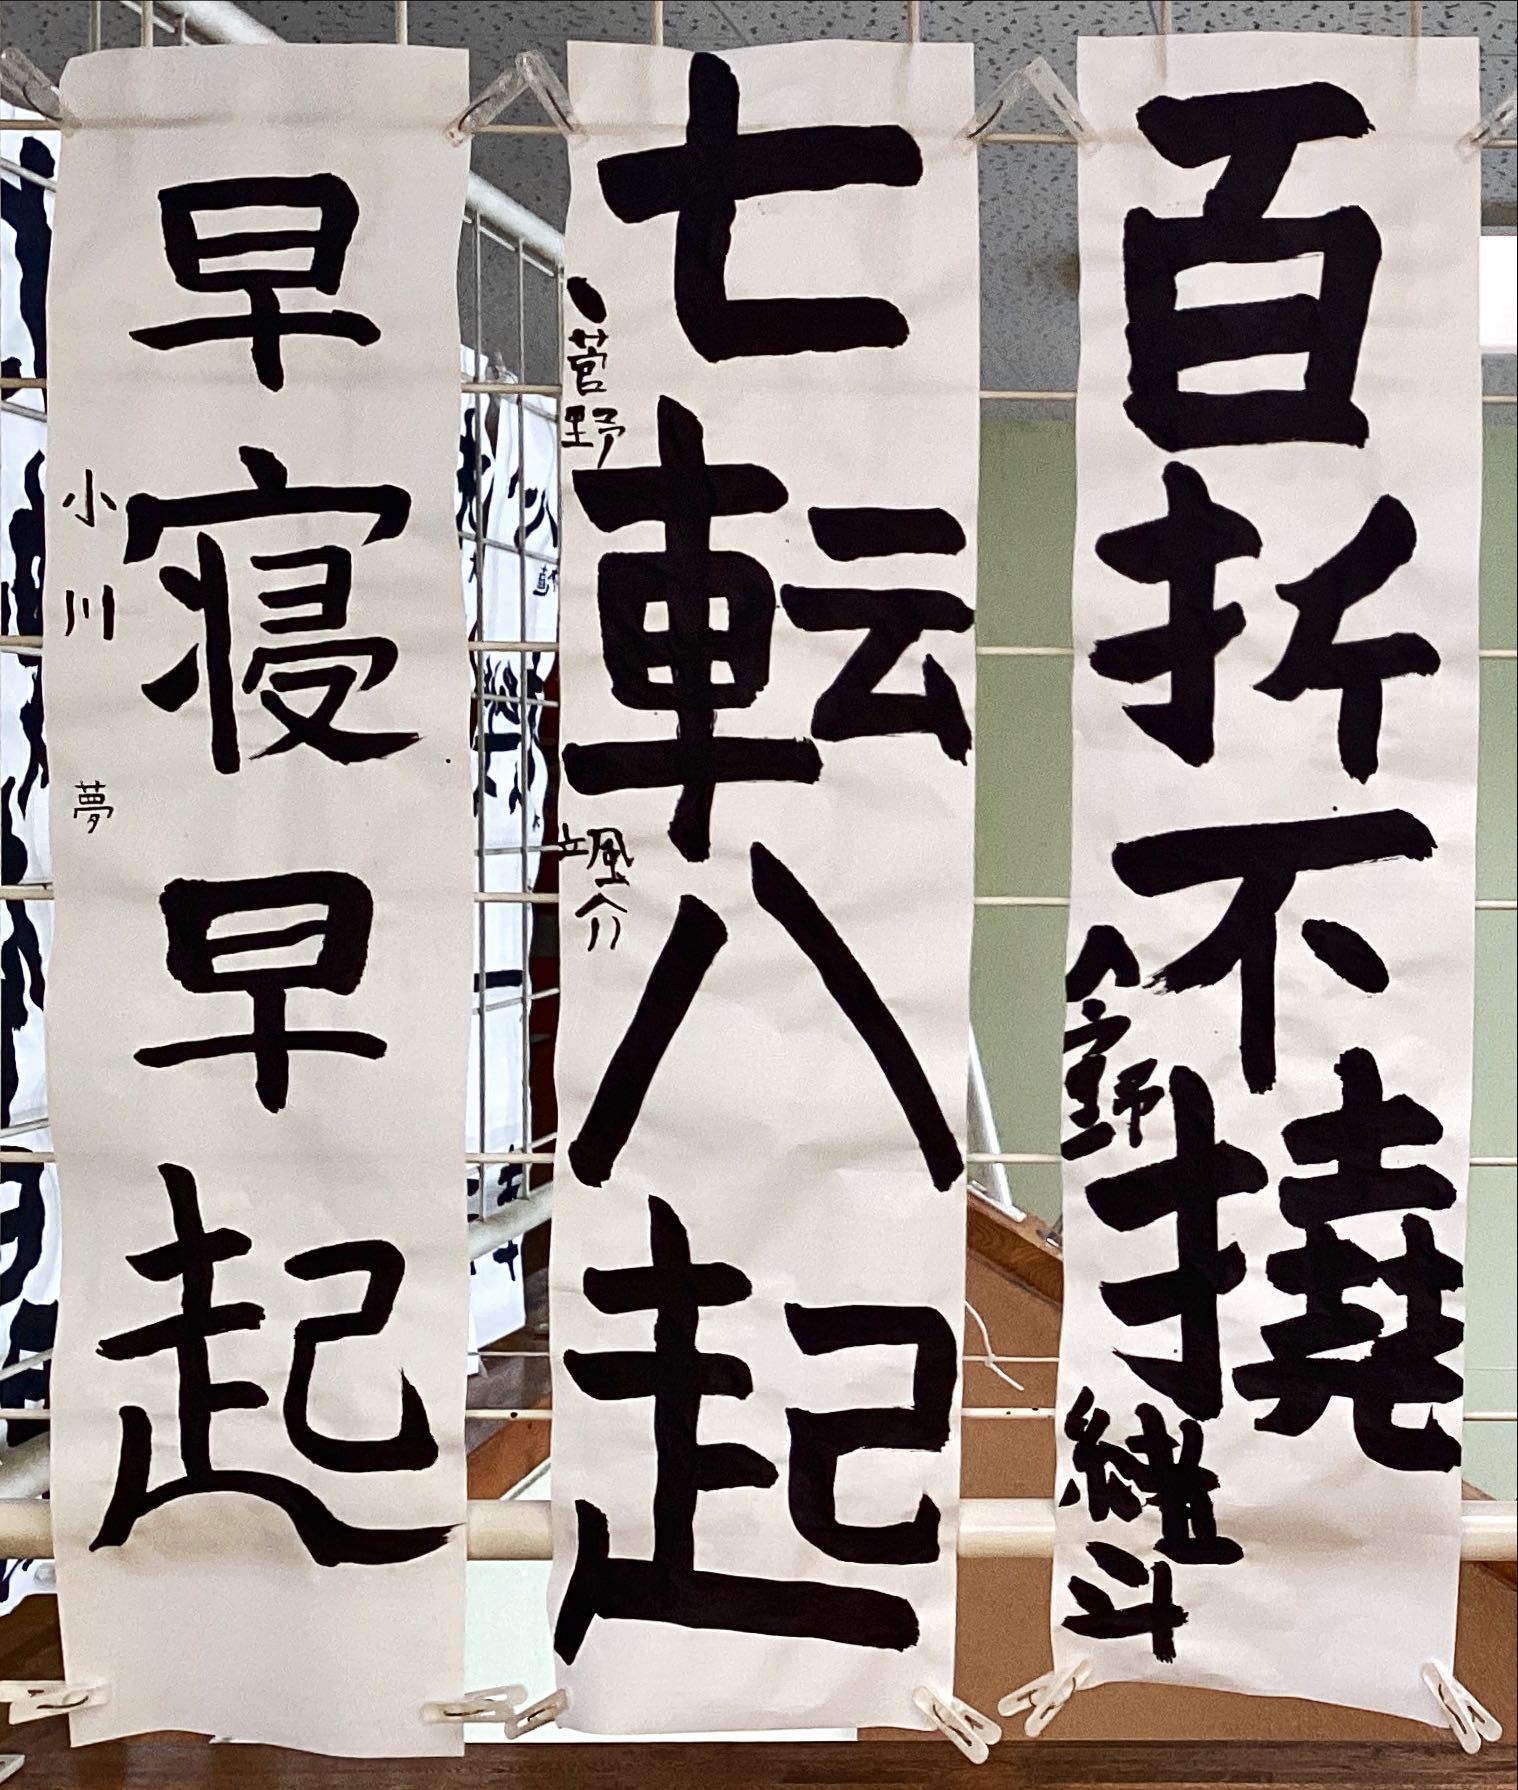 百折不撓
緒斗
七転八起
菅野
颯介
早寝早起
小川
夢